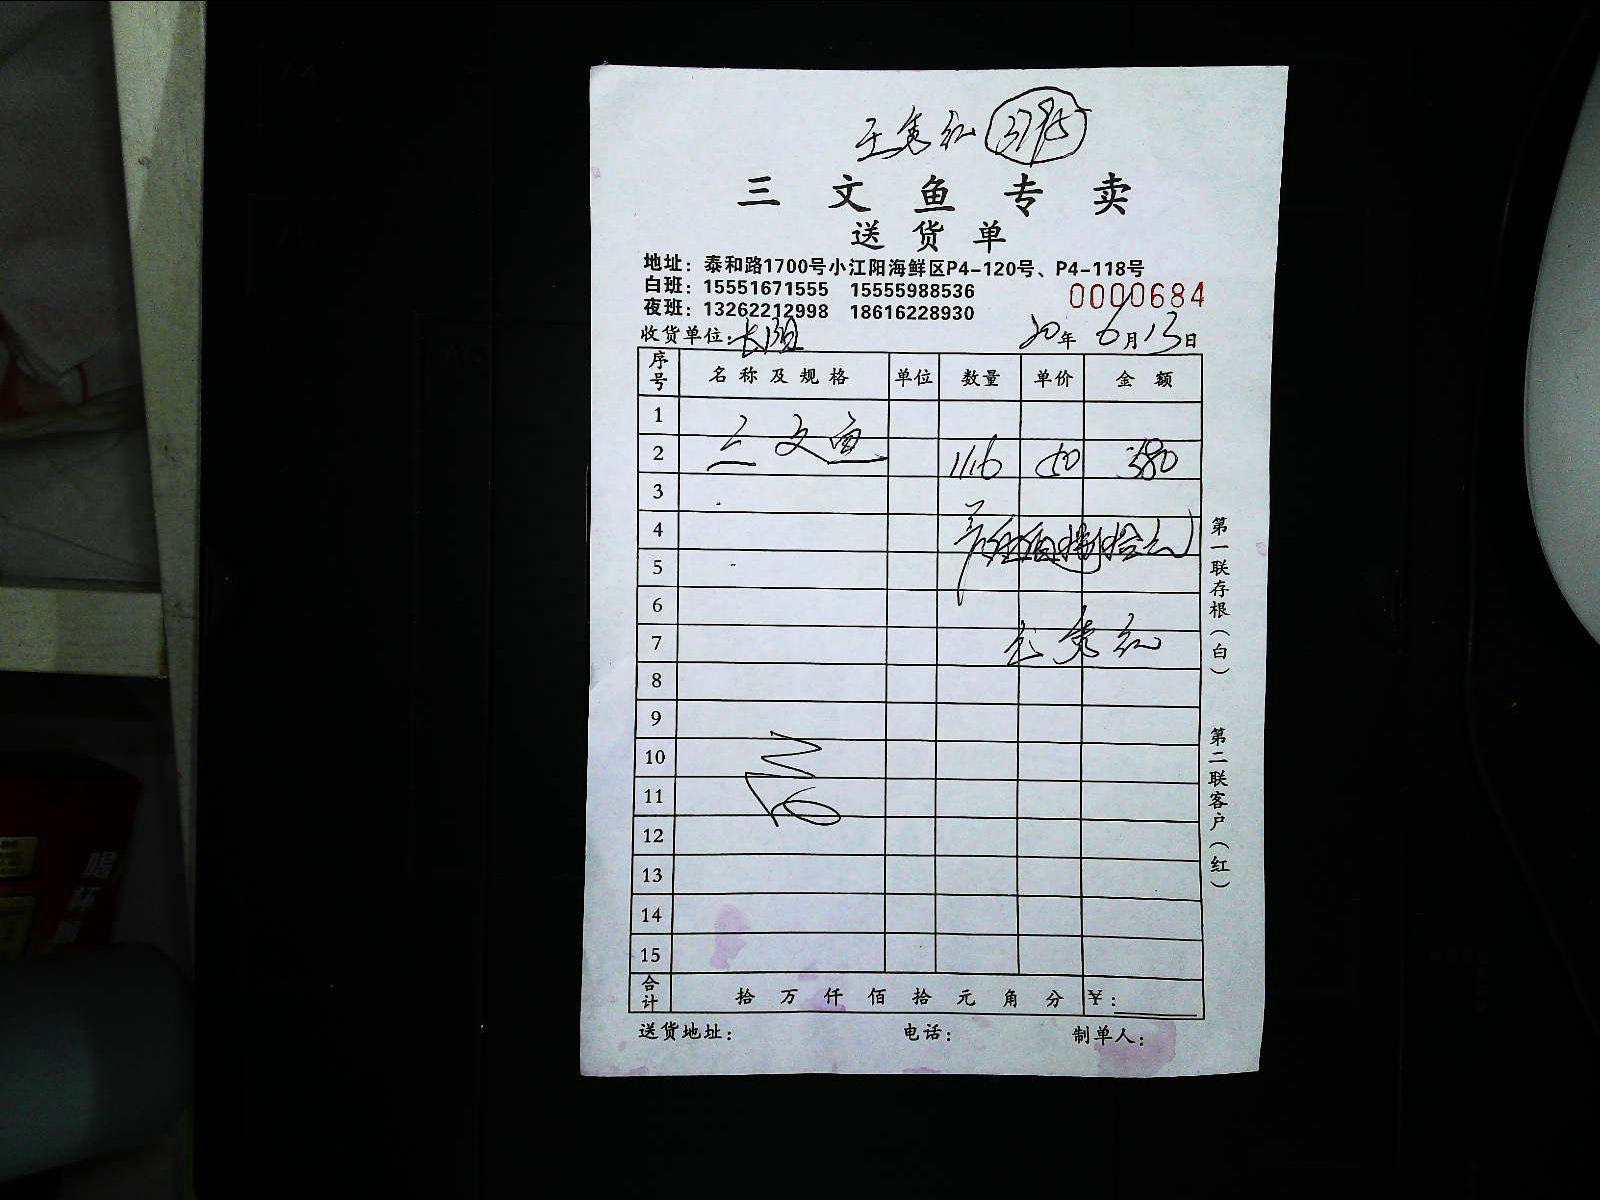 王秀红 3795
三文鱼专卖
送货单
地址：泰和路1700号小江阳海鲜区P4-120号、P4-118号
白班：15551671555 15555988536
夜班：13262212998 18616228930
0000684
收货单位：长阳 20年6月13日
序号 名称及规格 单位 数量 单价 金额
1
2 三文鱼 11.6 50 580
3
4
5
6
7 秀红
8
9
10
11
12
13
14
15
合计 拾万仟佰拾元角分 ￥：
送货地址： 电话： 制单人：
第一联存根（白）
第二联客户（红）
喝杯